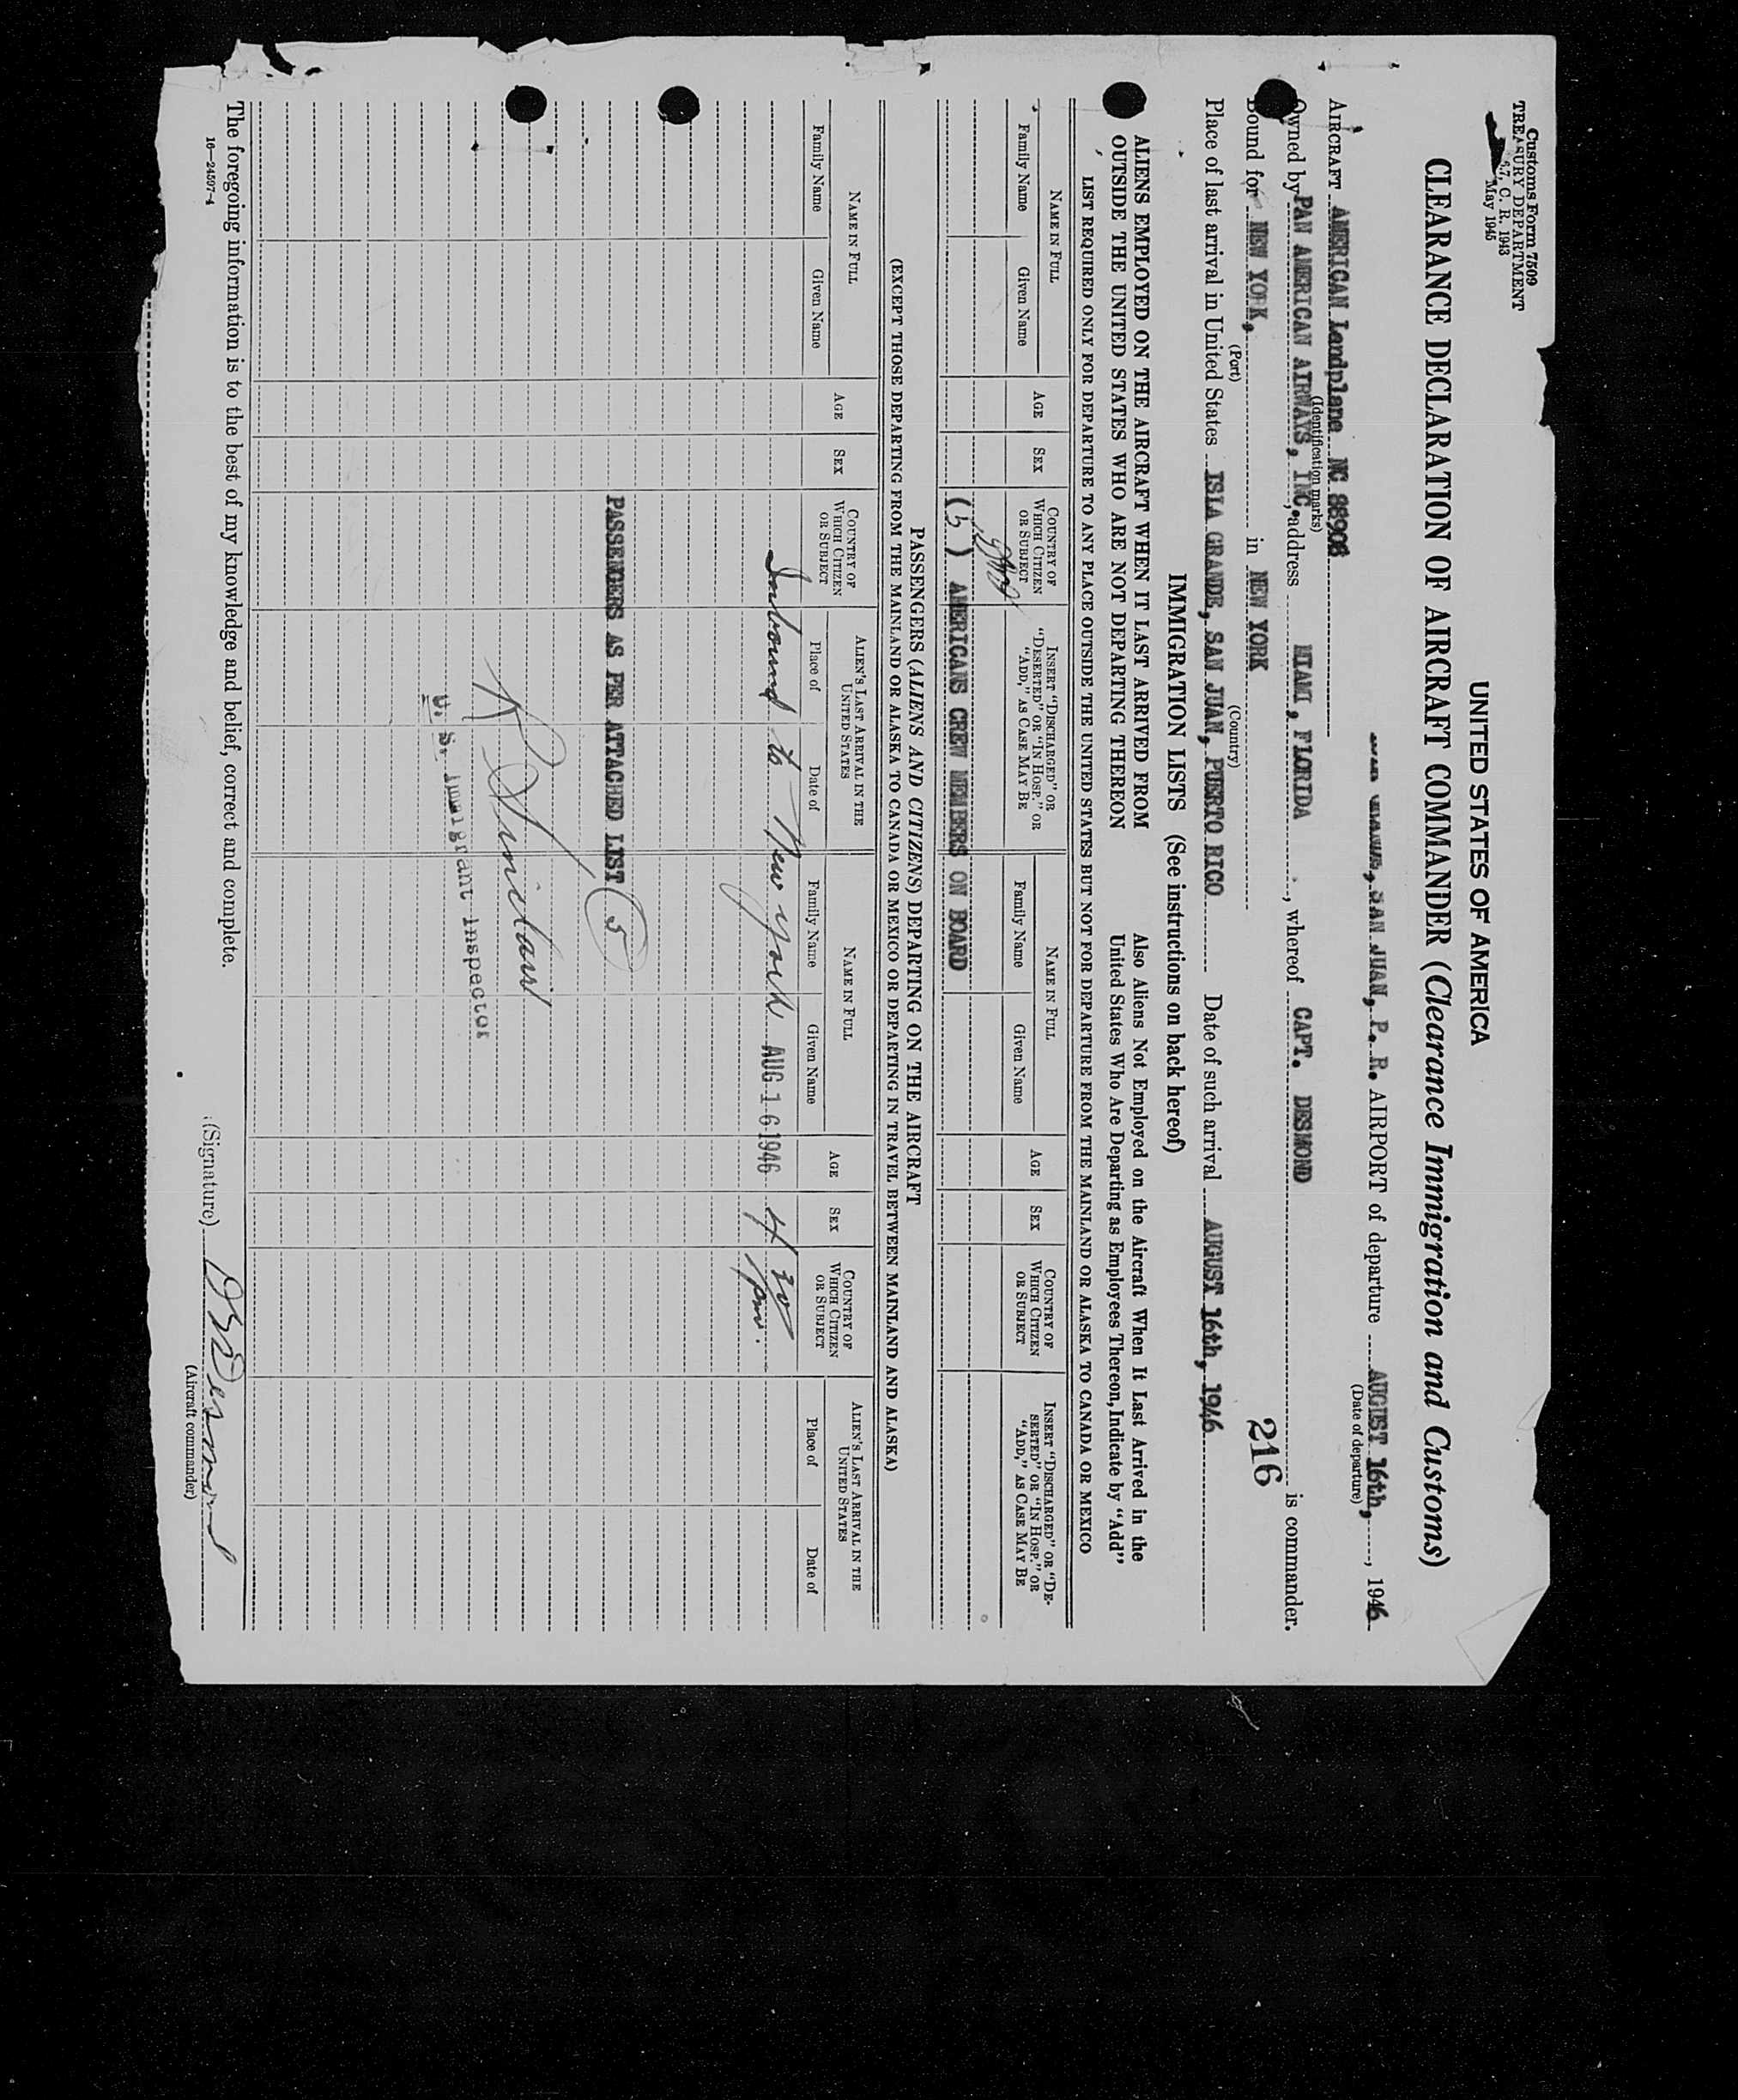 Customs Form 7509
TREASURY DEPARTMENT
C. R. 1943
May 1945
UNITED STATES OF AMERICA
CLEARANCE DECLARATION OF AIRCRAFT COMMANDER (Clearance Immigration and Customs)
SAN JUAN, P. R. AIRPORT of departure AUGUST 16th, , 1946
(Date of departure)
AIRCRAFT AMERICAN Landplane NC 88906
(Identification marks)
Owned by PAN AMERICAN AIRWAYS, INC., address MIAMI, FLORIDA , whereof CAPT. DESMOND is commander.
Bound for NEW YORK, in NEW YORK
216
(Port) (Country)
Place of last arrival in United States ISLA GRANDE, SAN JUAN, PUERTO RICO Date of such arrival AUGUST 16th, 1946
IMMIGRATION LISTS (See instructions on back hereof)
ALIENS EMPLOYED ON THE AIRCRAFT WHEN IT LAST ARRIVED FROM
OUTSIDE THE UNITED STATES WHO ARE NOT DEPARTING THEREON
Also Aliens Not Employed on the Aircraft When It Last Arrived in the
United States Who Are Departing as Employees Thereon, Indicate by "Add"
LIST REQUIRED ONLY FOR DEPARTURE TO ANY PLACE OUTSIDE THE UNITED STATES BUT NOT FOR DEPARTURE FROM THE MAINLAND OR ALASKA TO CANADA OR MEXICO
NAME IN FULL
Family Name Given Name
AGE
SEX
COUNTRY OF
WHICH CITIZEN
OR SUBJECT
INSERT "DISCHARGED" OR
"DESERTED" OR "IN HOSP." OR
"ADD," AS CASE MAY BE
NAME IN FULL
Family Name Given Name
AGE
SEX
COUNTRY OF
WHICH CITIZEN
OR SUBJECT
INSERT "DISCHARGED" OR "DE-
SERTED" OR "IN HOSP." OR
"ADD," AS CASE MAY BE
(5) AMERICANS CREW MEMBERS ON BOARD
PASSENGERS (ALIENS AND CITIZENS) DEPARTING ON THE AIRCRAFT
(EXCEPT THOSE DEPARTING FROM THE MAINLAND OR ALASKA TO CANADA OR MEXICO OR DEPARTING IN TRAVEL BETWEEN MAINLAND AND ALASKA)
NAME IN FULL
Family Name Given Name
AGE
SEX
COUNTRY OF
WHICH CITIZEN
OR SUBJECT
ALIEN'S LAST ARRIVAL IN THE
UNITED STATES
Place of Date of
NAME IN FULL
Family Name Given Name
AGE
SEX
COUNTRY OF
WHICH CITIZEN
OR SUBJECT
ALIEN'S LAST ARRIVAL IN THE
UNITED STATES
Place of Date of
Inbound to New York AUG 16 1946
PASSENGERS AS PER ATTACHED LIST (5)
U. S. Immigrant Inspector
The foregoing information is to the best of my knowledge and belief, correct and complete.
16—24507-1
(Signature) Desmond
(Aircraft commander)